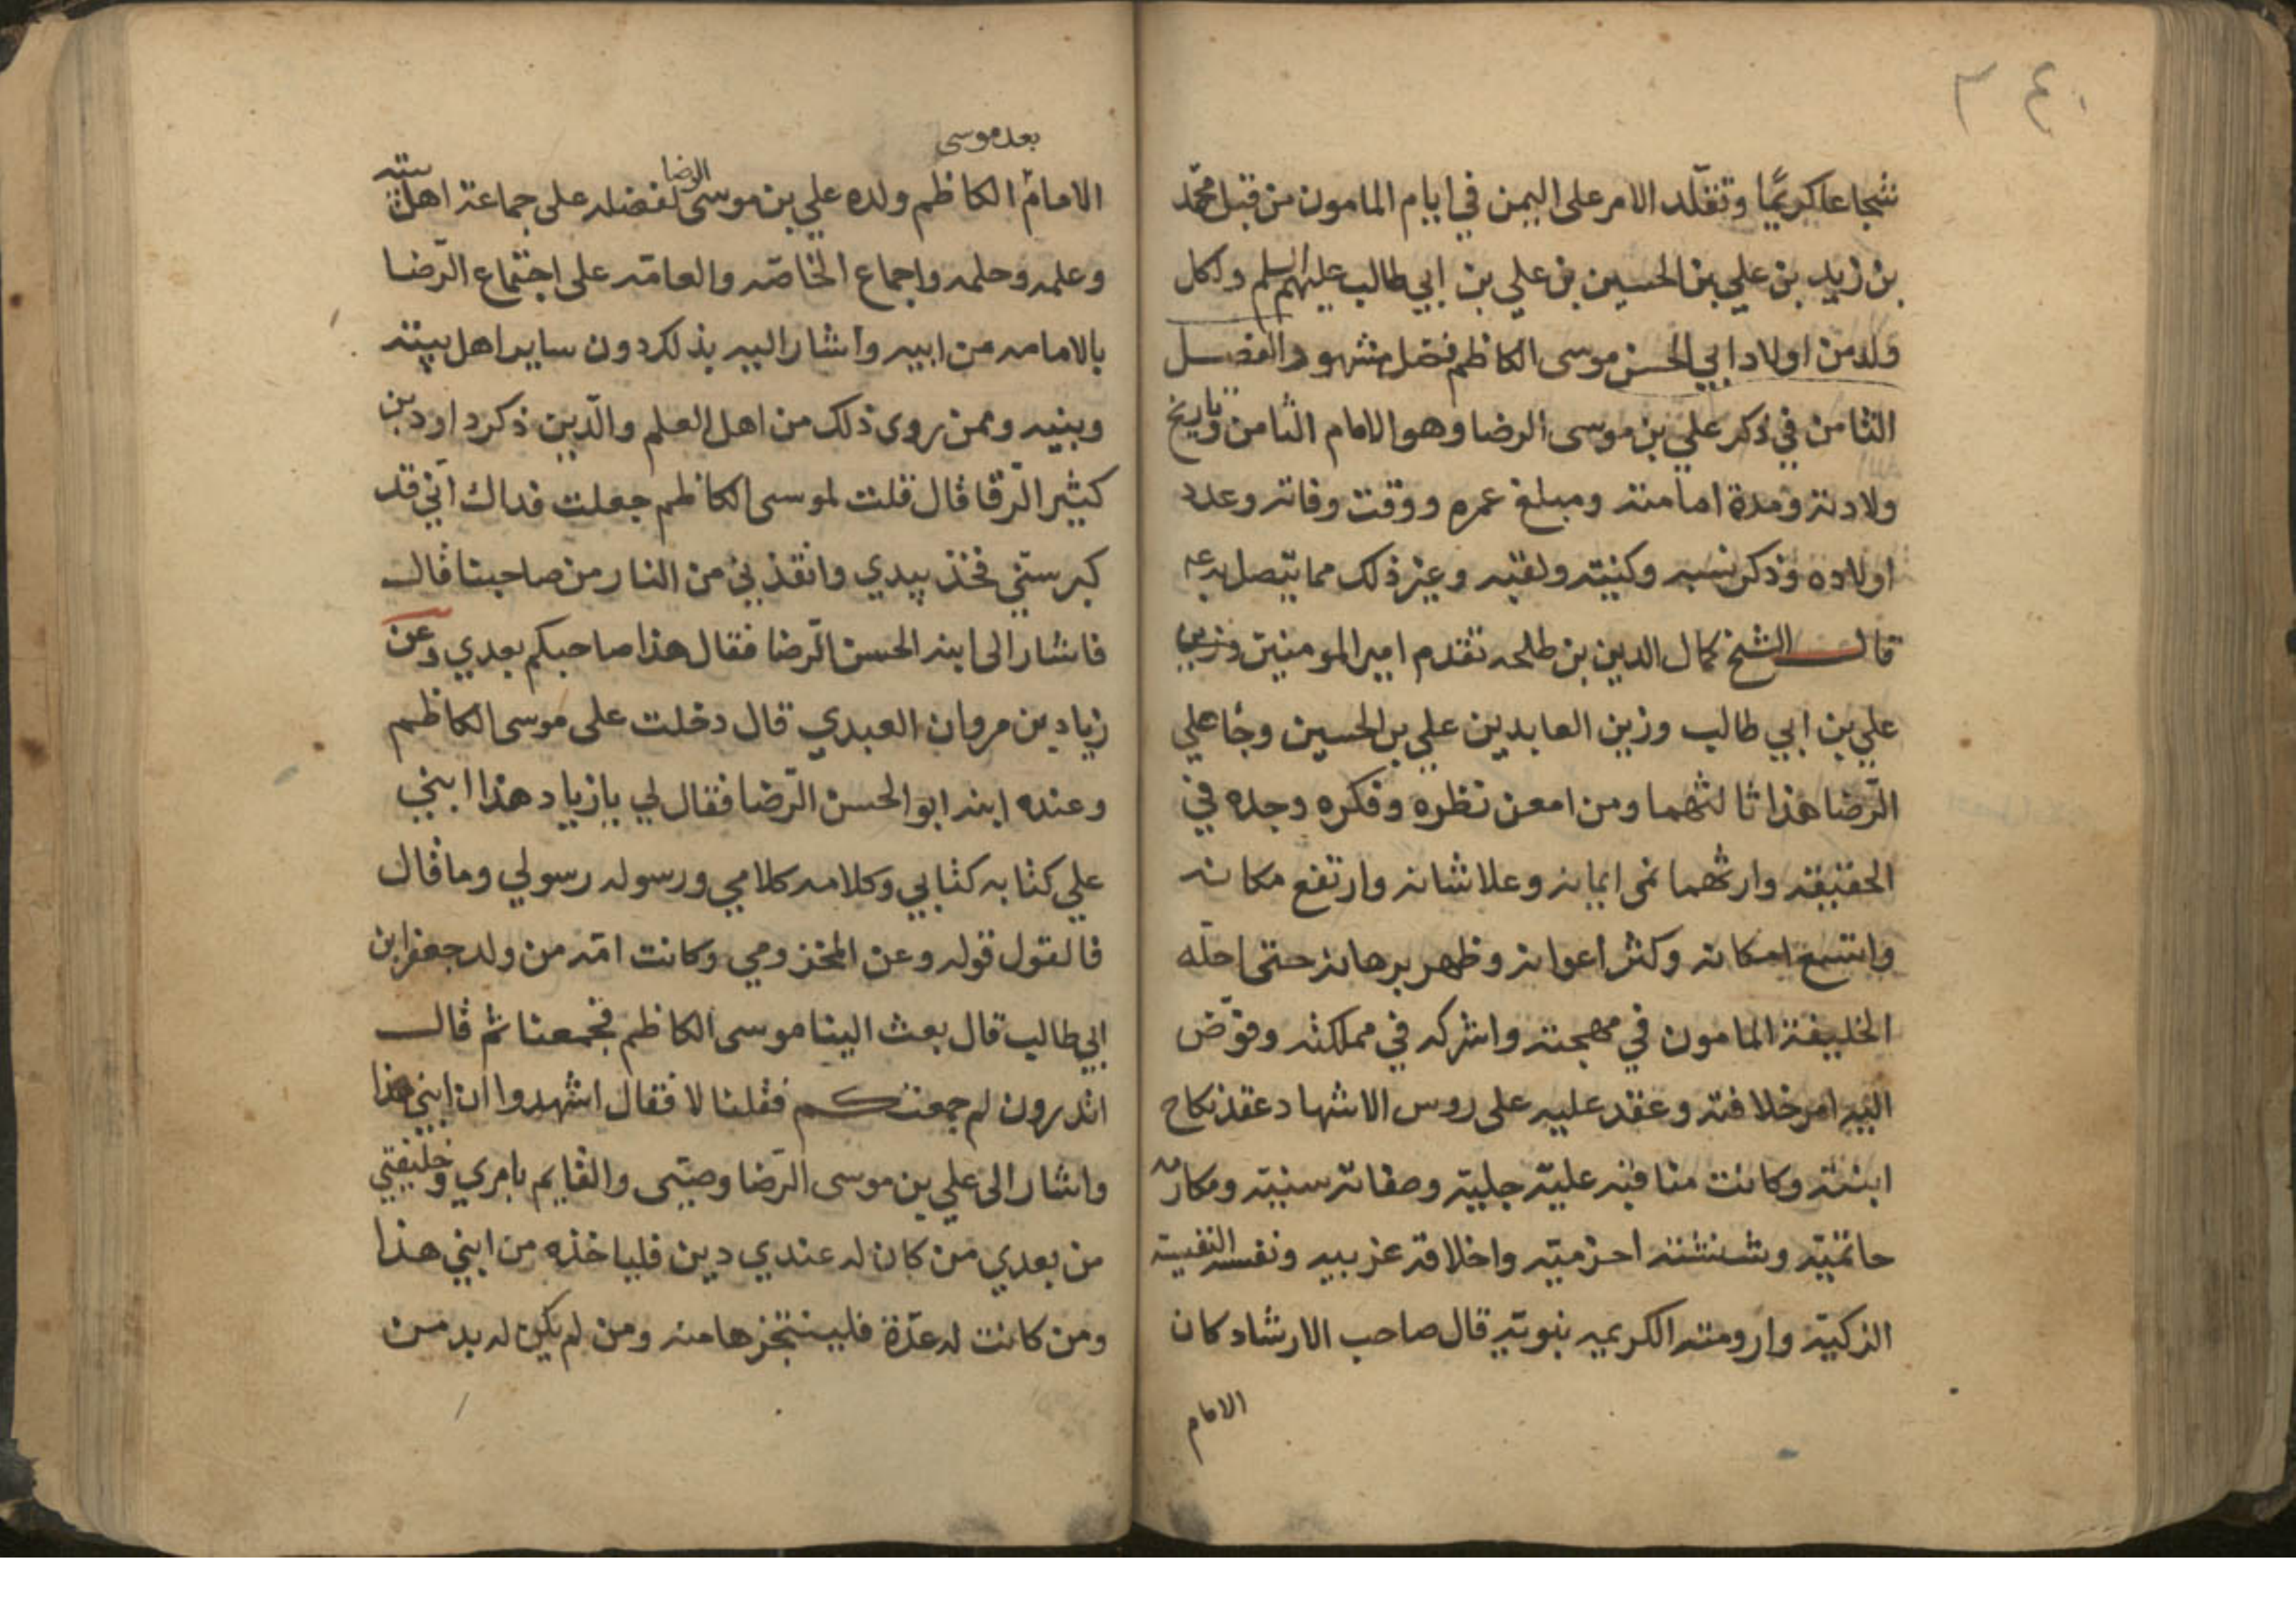 ٣٤٠
شجاعا كريمًا وتقلّد الامر على اليمن في ايام المامون من قبل محمّد
بن زيد بن علي بن الحسين بن علي بن ابي طالب عليهم السلم ولكل
ولد من اولاد ابي الحسن موسى الكاظم فضل مشهور الفصل
الثامن في ذكر علي بن موسى الرضا وهو الامام الثامن وتاريخ
ولادته ومدة امامته ومبلغ عمره ووقت وفاته وعدد
اولاده وذكر نسبه وكنيته ولقبه وغير ذلك مما يتصل به
قال الشيخ كمال الدين بن طلحه تقدم امير المومنين
علي بن ابي طالب وزين العابدين علي بن الحسين وجا علي
الرّضا هذا ثالثهما ومن امعن نظره وفكره وجده في
الحقيقة وارثهما نمى ايمانه وعلا شانه وارتفع مكانه
واتسع امكانه وكثر اعوانه وظهر برهانه حتى احلّه
الخليفة المامون في مهجته واشركه في مملكته وفوّض
اليه امر خلافته وعقد عليه على روس الاشهاد عقد نكاح
ابنته وكانت مناقبه عليّة جليّة وصفاته سنيّة ومكارمه
حاتميّه وشنشنته اخزميّه واخلاقه عربيه ونفسه النفيسة
الزكيّة وارومته الكريمه نبويّه قال صاحب الارشاد كان
الامام
بعد موسى
الامام الكاظم ولده علي بن موسى الرضا لفضله على جماعة اهل بيته
وعلمه وحلمه واجماع الخاصّه والعامّه على اجتماع الرّضا
بالامامه من ابيه واشار اليه بذلك دون ساير اهل بيته
وبنيه وممن روى ذلك من اهل العلم والدّين ذكر داود بن
كثير الرّقا قال قلت لموسى الكاظم جعلت فداك انّي قد
كبر سنّي فخذ بيدي وانقذني من النار من صاحبنا قال
فاشار الى ابنه الحسن الرّضا فقال هذا صاحبكم بعدي وعن
زياد بن مروان العبدي قال دخلت على موسى الكاظم
وعنده ابنه ابو الحسن الرّضا فقال لي يا زياد هذا ابني
علي كتابه كتابي وكلامه كلامي ورسوله رسولي وما قال
فالقول قوله وعن المخزومي وكانت امّه من ولد جعفر ابن
ابي طالب قال بعث الينا موسى الكاظم فجمعنا ثم قال
اتدرون لم جمعتكم فقلنا لا فقال اشهدوا ان ابني هذا
واشار الى علي بن موسى الرّضا وصيّى والقايم بامري وخليفتي
من بعدي من كان له عندي دين فلياخذه من ابني هذا
ومن كانت له عدّة فليستنجزها منه ومن لم يكن له بد من